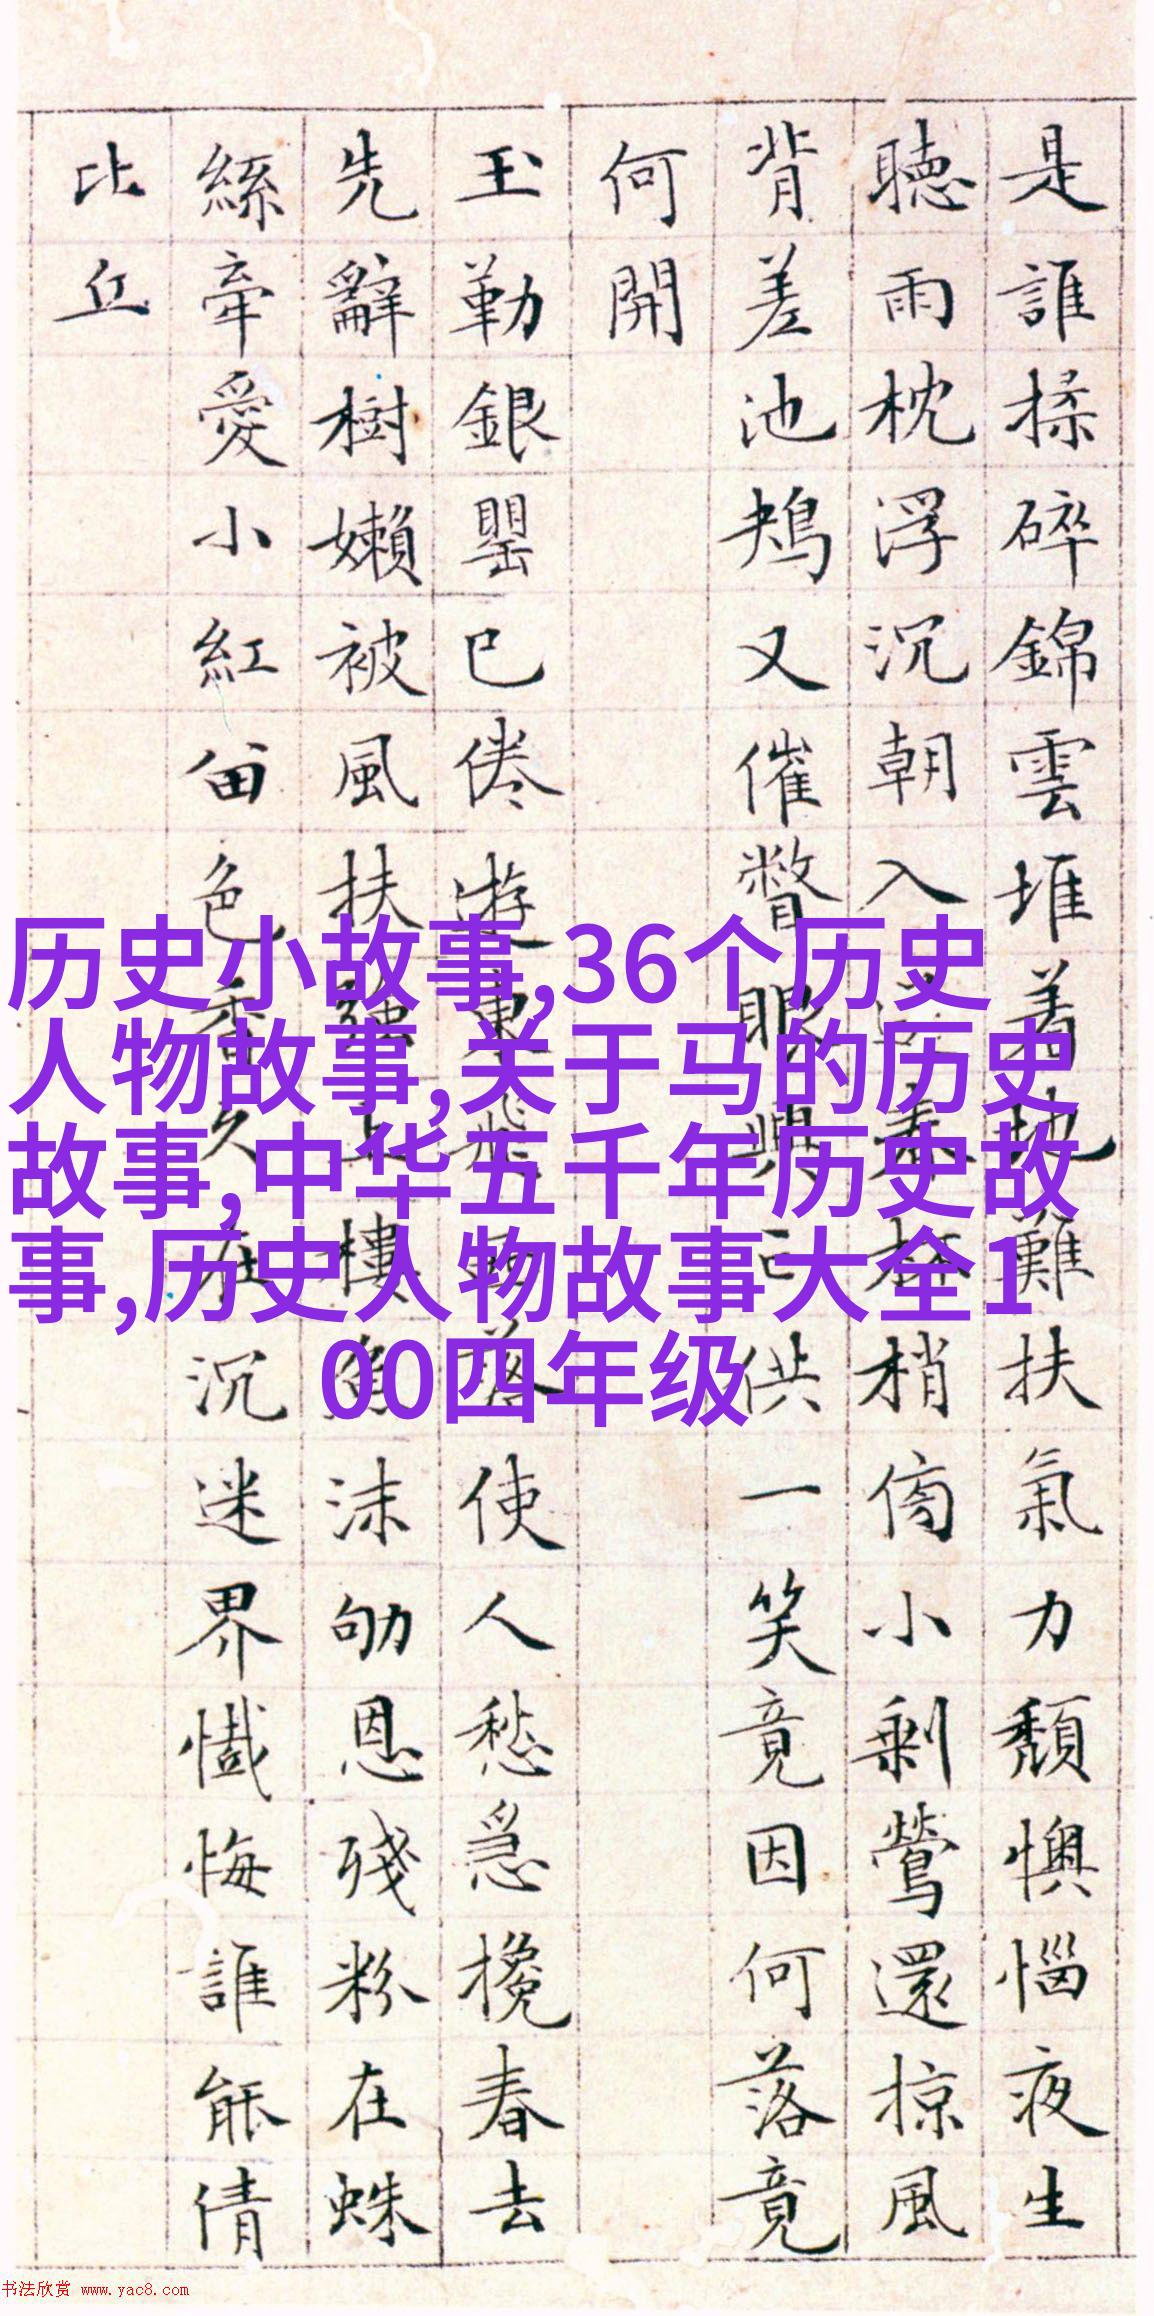 是誰揉碎錦雲堆着地難扶氣力頹懊惱夜生
聽雨枕浮沉朝入春杯梢小剩鶯還掠風
背差池鴂又催瞥眼興亡供一笑竟因何落竟
何開
玉勒銀罌已倦遊東飛西落使人愁急攙春去
先辭樹嬾被風扶強上樓魚沫劬恩殘粉在蛛
絲牽愛小紅留色香久在沉迷界懺悔誰能倩
比丘
历史小故事,36个历史
人物故事,关于马的历史
故事,中华五千年历史故
事,历史人物故事大全1
00四年级
书法欣赏 www.yac8.com